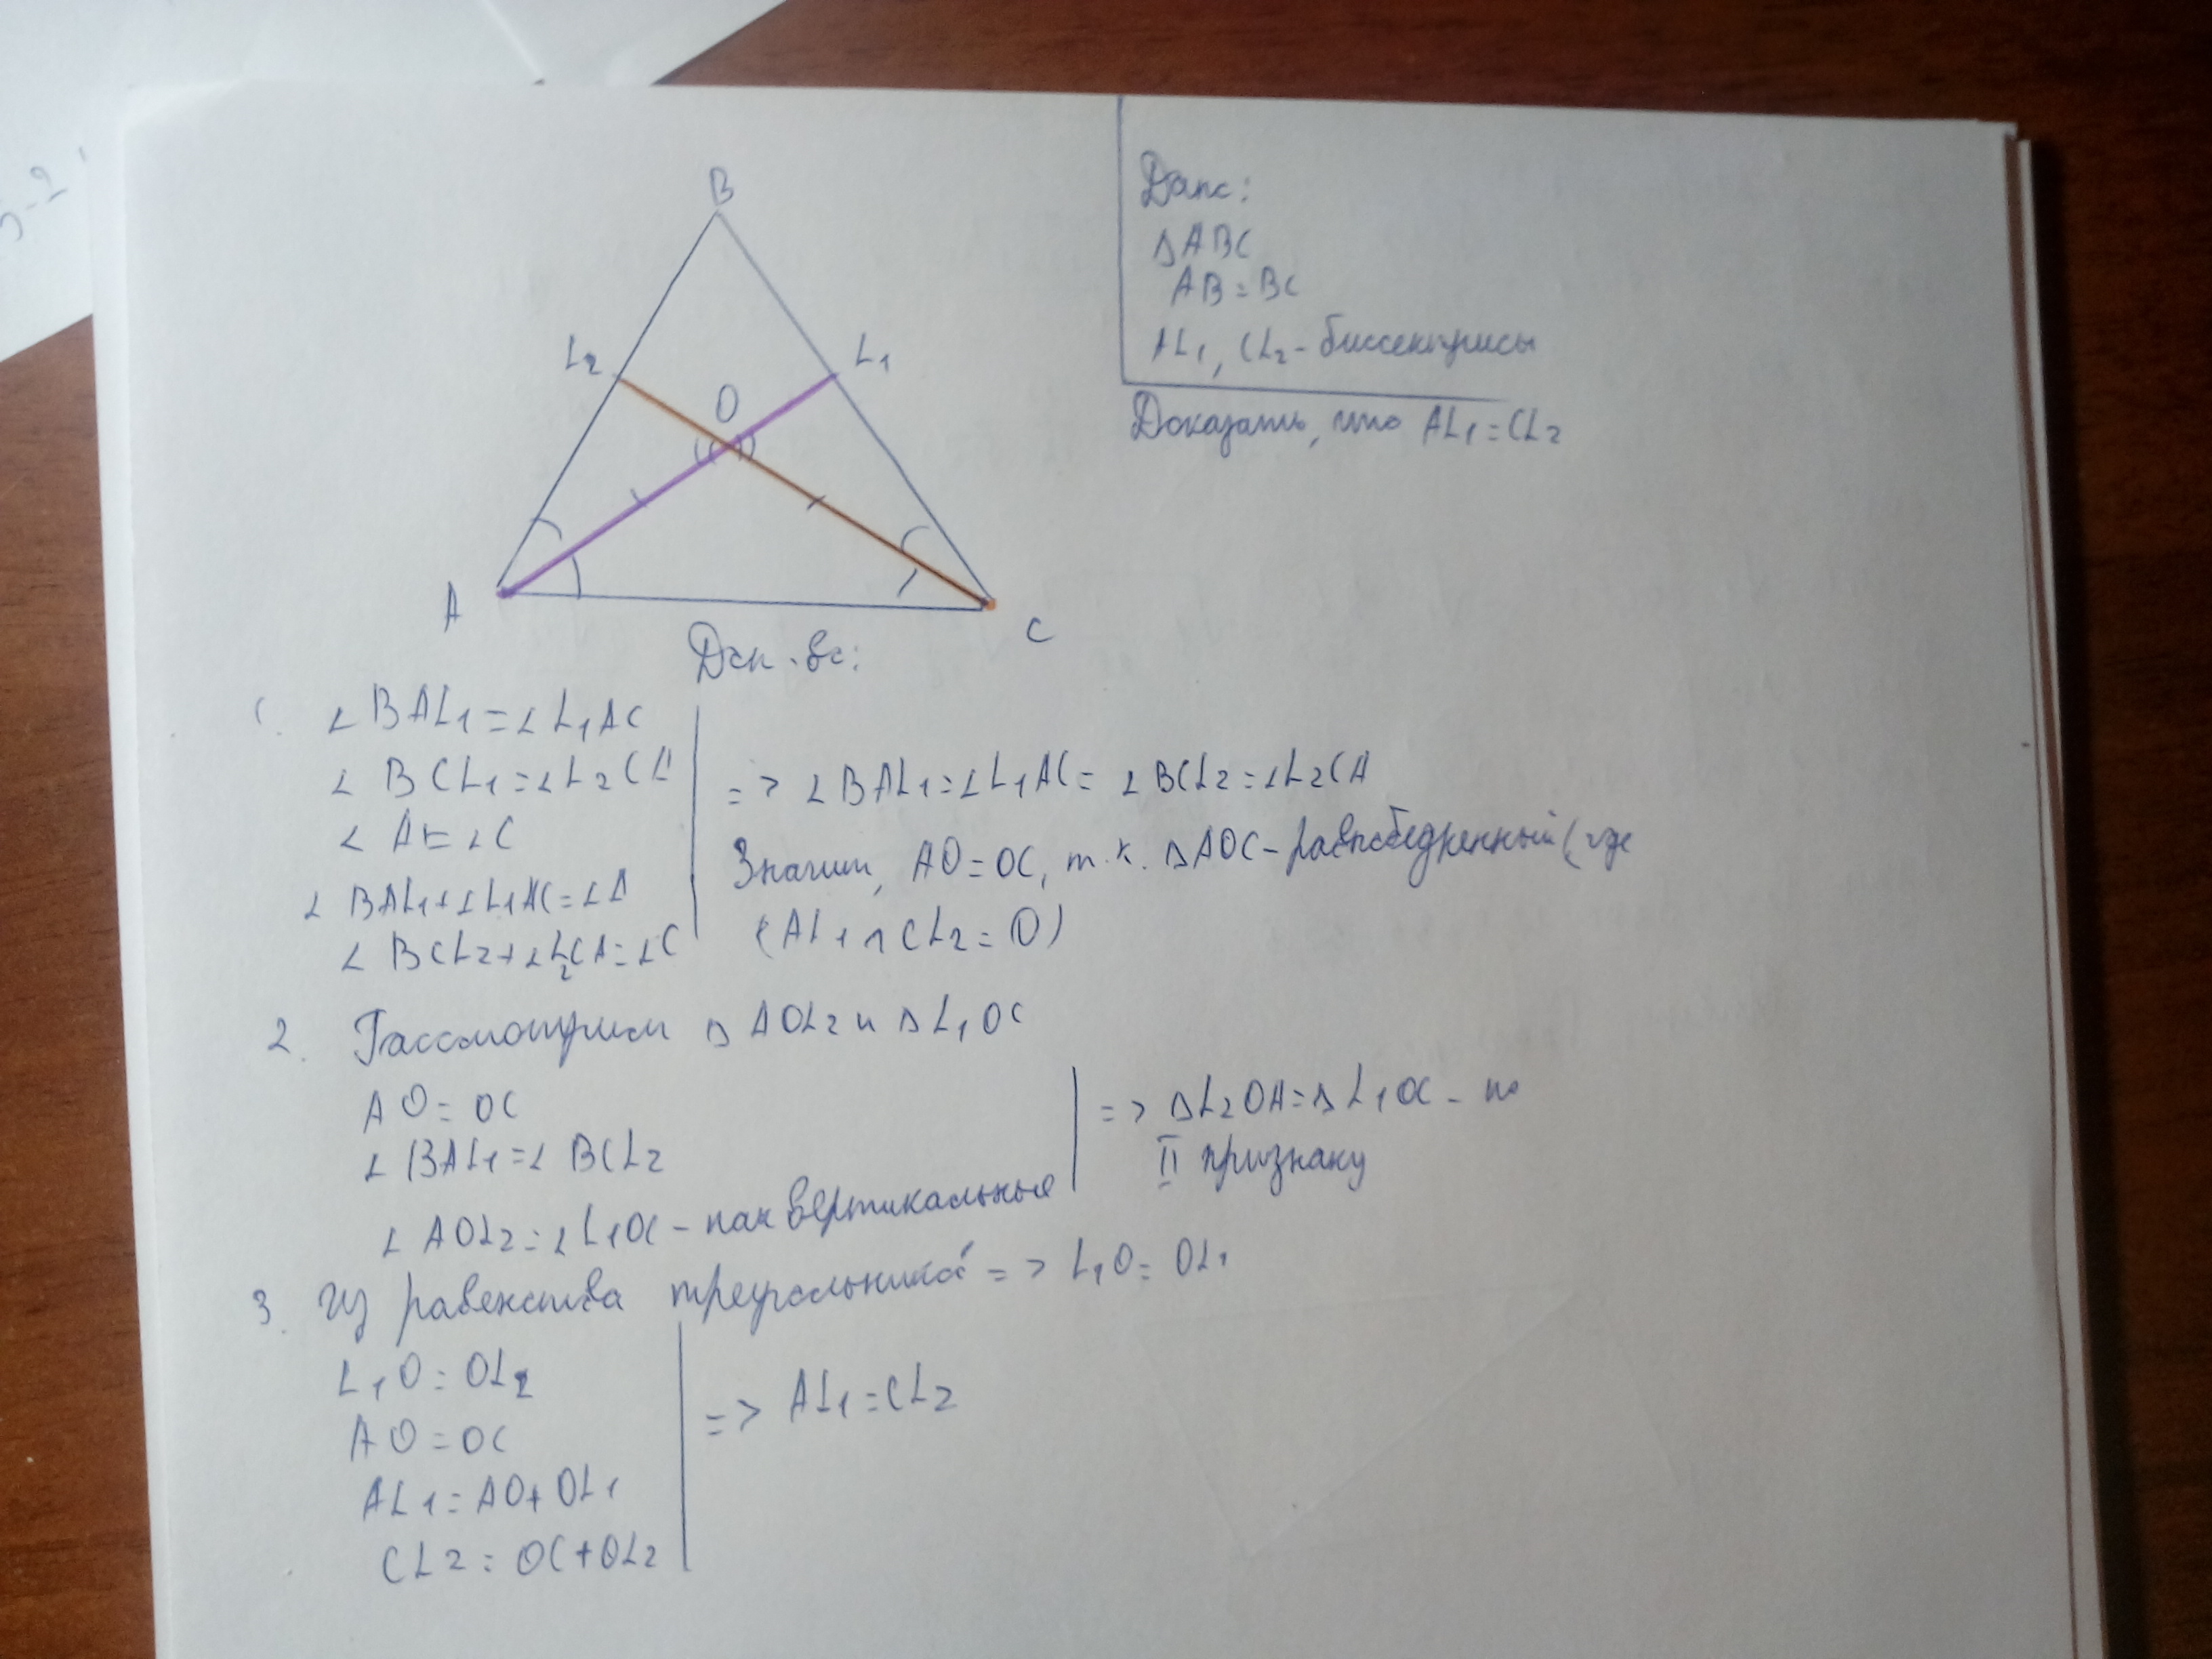 B
L2
L1
O
A
C
Дано:
∆ABC
AB=BC
AL1, CL2-биссектрисы
Доказать, что AL1=CL2
Док-во:
1. ∠BAL1=∠L1AC
∠BCL1=∠L2CA
∠A=∠C
∠BAL1+∠L1AC=∠A
∠BCL2+∠L2CA=∠C
=> ∠BAL1=∠L1AC=∠BCL2=∠L2CA
Значит, AO=OC, т.к. ∆AOC-равнобедренный (где
(AL1∩CL2=O)
2. Рассмотрим ∆AOL2 и ∆L1OC
AO=OC
∠BAL1=∠BCL2
∠AOL2=∠L1OC-как вертикальные
=> ∆L2OA=∆L1OC - по
II признаку
3. Из равенства треугольников => L1O=OL1
L1O=OL2
AO=OC
AL1=AO+OL1
CL2=OC+OL2
=> AL1=CL2